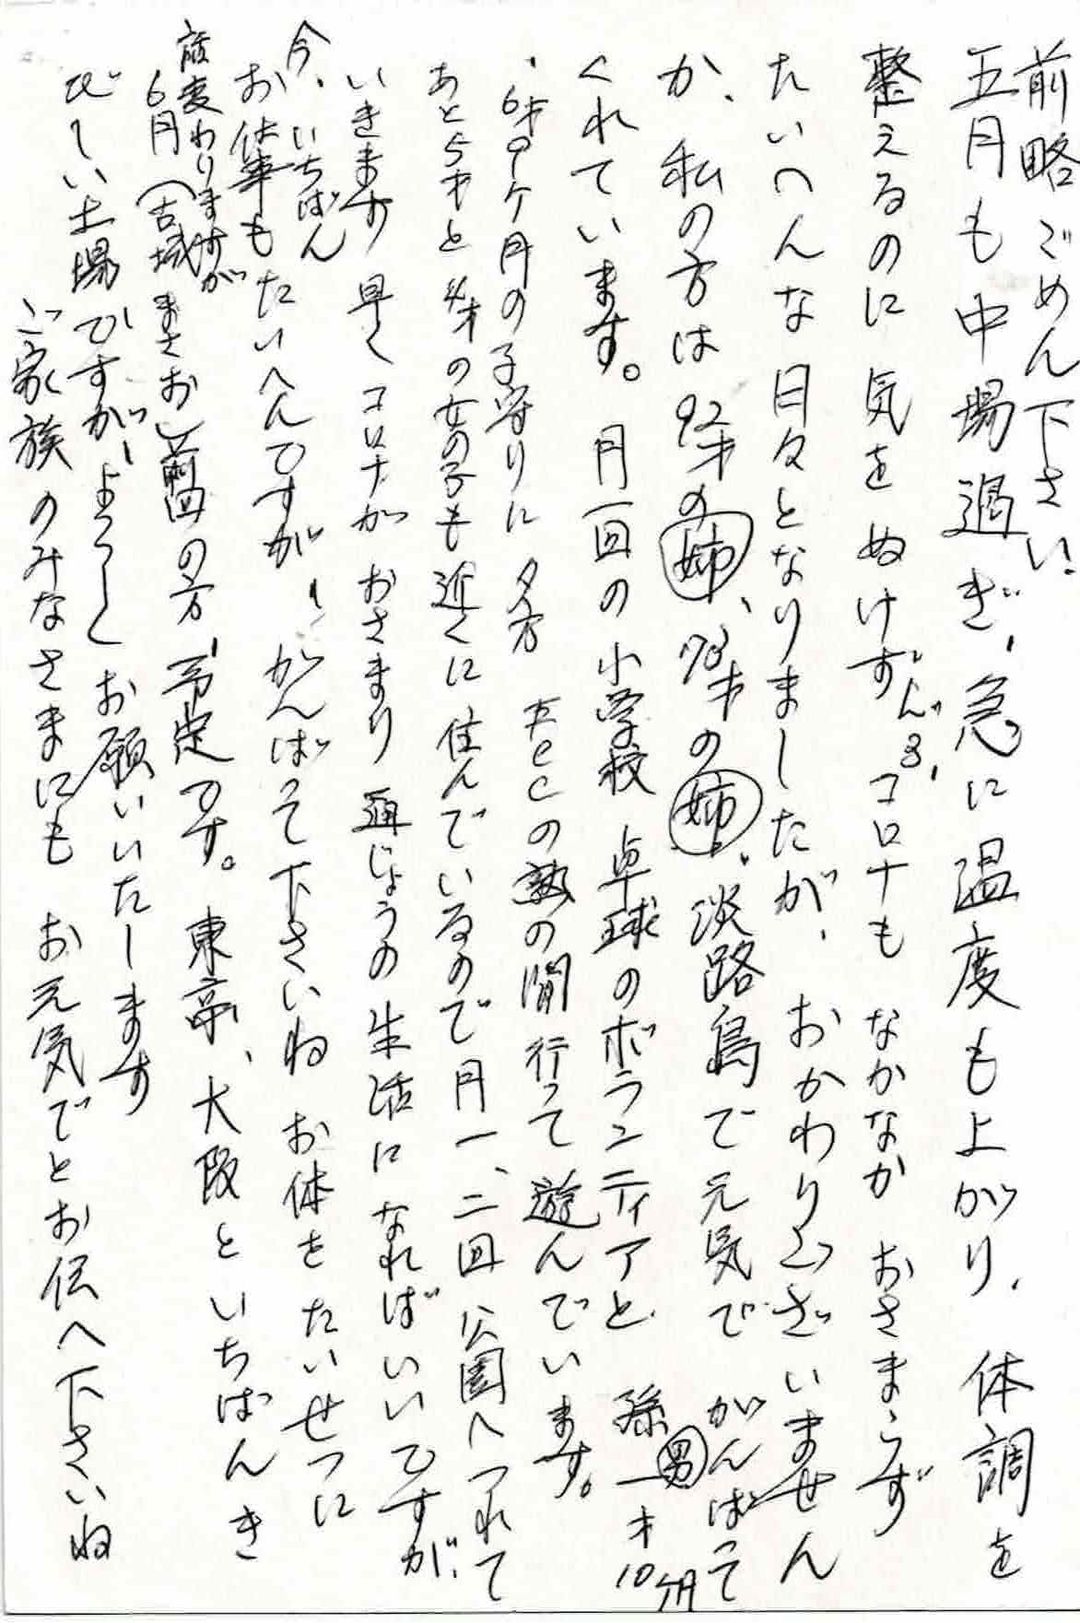 前略ごめん下さい。
五月も中場過ぎ、急に温度も上がり、体調を
整えるのに気をぬけず コロナも なかなか おさまらず
たいへんな日々となりましたが、おかわりございません
か、私の方は92才の姉、78才の姉、淡路島で元気で がんばって
くれています。月一回の小学校 卓球のボランティアと 孫 男 一才10ヶ月
・6才9ヶ月の子守りに 夕方 の塾の間行って遊んでいます。
あと5才と4才の女の子も近くに住んでいるので月一、二回 公園へつれて
いきます 早くコロナが おさまり 通じょうの生活に なればいいですが、
今、いちばん
お仕事もたいへんですが、がんばって下さいね お体をたいせつに
度変わりますが
6月(古城まさお)前回の方、予定です。東京、大阪といちばんき
びしい土場ですが、よろしくお願いいたします
ご家族のみなさまにも お元気でとお伝へ下さいね